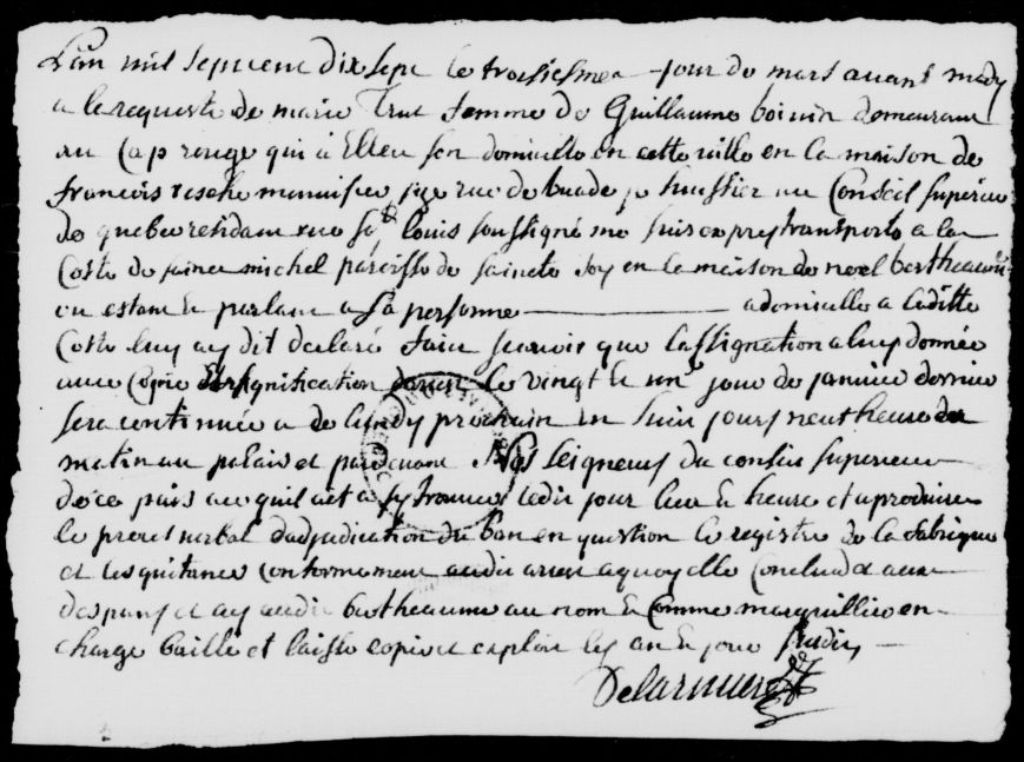 L'an mil sept cent dix sept le troisiesme jour de mars avant midy
a la requeste de marie Trut femme de Guillaume boivin demeurant
au Cap rouge qui a Elleu son domicille en cette ville en la maison de
francois resche menuisier size rue de buade je huissier au Conseil superieur
de quebec residant rue St louis soussigné me suis exprey transporté a la
Coste de sainct michel paroisse de saincte foy en la maison de noel bertheaume
ou estant & parlant a sa personne a domicille a laditte
Coste luy ay dit declaré faict scavoir que lassignation a luy donnée
avec Copie et signification darrest le vingt & un jour de janvier dernier
sera continuée a de lundy prochain en huit jours neuf heure du
matin au palais et pardevant Nos Seigneurs du conseil superieur
de ce pais a ce quil ait a sy trouver ledit jour lieu & heure et a produire
le procest verbal dadjudication du ban en question le registre de la fabrique
et les quitances conformement audit arrest a quoy elle Conclud et aux
despans et ay audit bertheaume au nom & Comme marguillier en
charge baillé et laissé copie et exploit les an & jour susdits
Delarmier